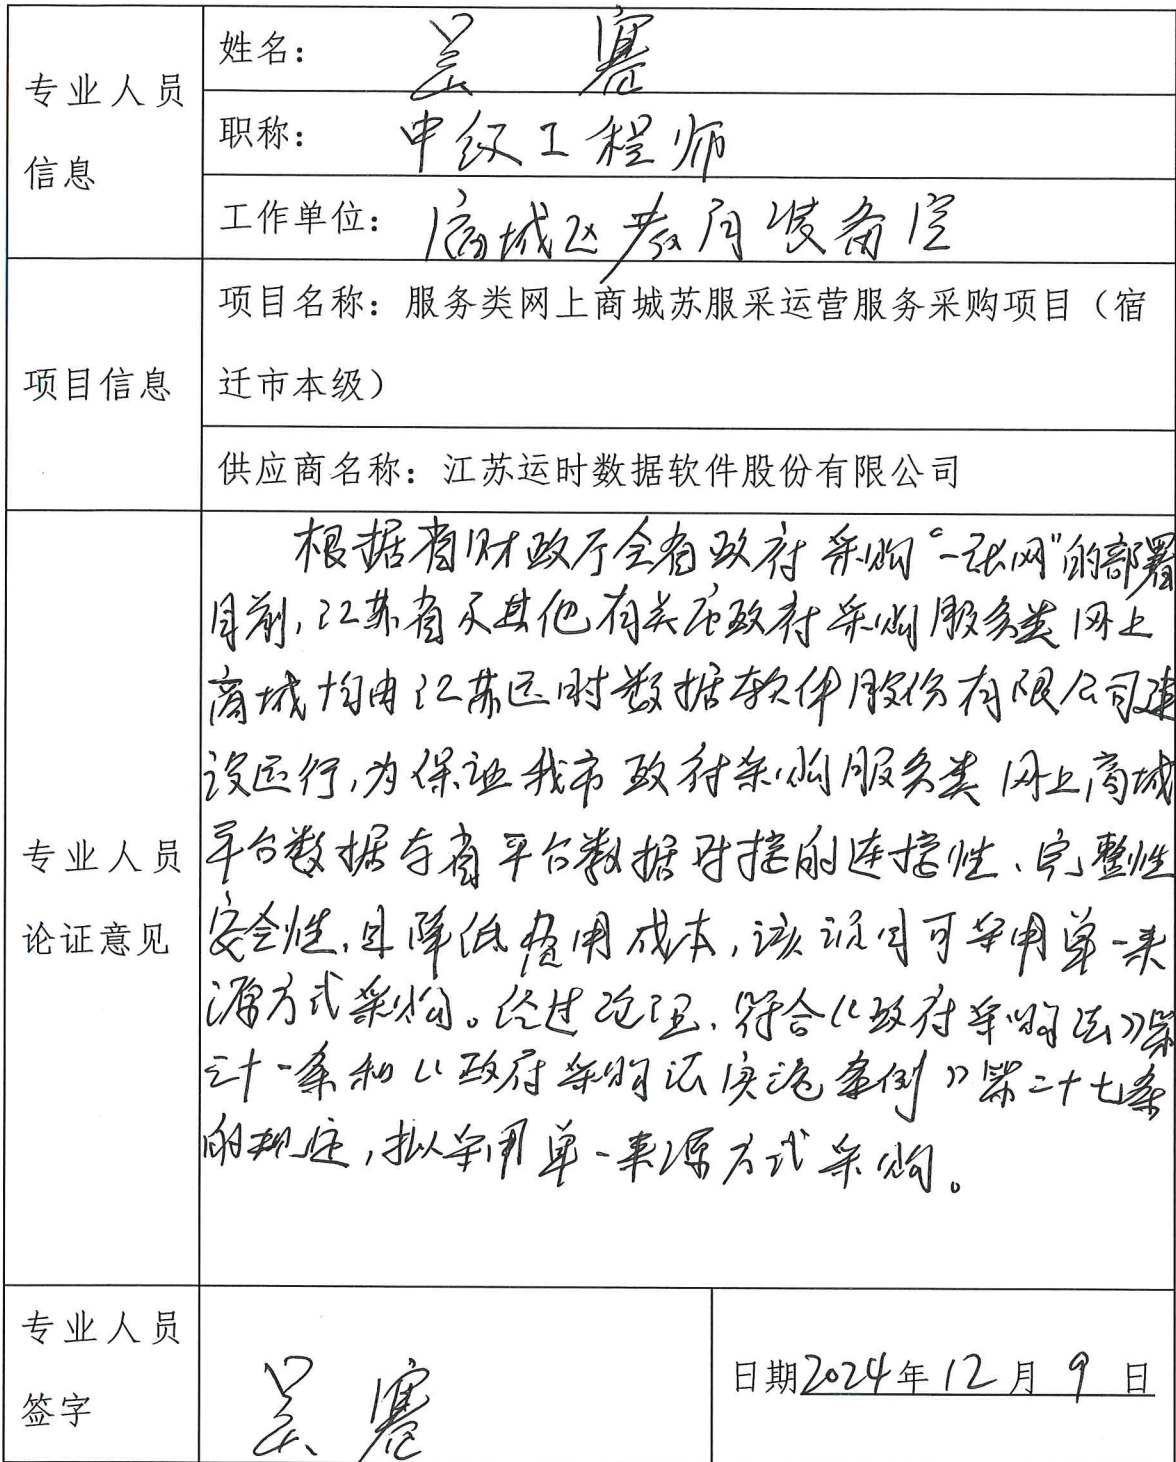 专业人员
信息
姓名：吴
职称：中级工程师
工作单位：城区教育装备室
项目信息
项目名称：服务类网上商城苏服采运营服务采购项目（宿
迁市本级）
供应商名称：江苏运时数据软件股份有限公司
专业人员
论证意见
根据省财政厅全省政府采购“一张网”的部署
目前，江苏省及其他有关区政府采购服务类网上
商城均由江苏运时数据软件股份有限公司建
设运行，为保证我市政府采购服务类网上商城
平台数据与省平台数据对接的连接性、完整性
安全性，且降低费用成本，该项目可采用单一来
源方式采购。经过论证，符合《政府采购法》第
三十一条和《政府采购法实施条例》第二十七条
的规定，拟采用单一来源方式采购。
专业人员
签字
吴
日期2024年12月9日